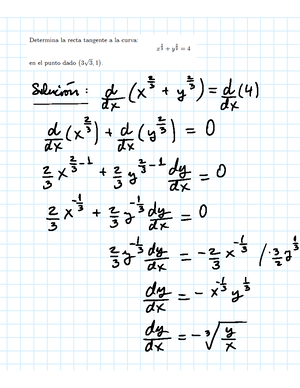 Determina la recta tangente a la curva:
x^{2/3} + y^{2/3} = 4
en el punto dado (3√3, 1).
Solución: d/dx (x^{2/3} + y^{2/3}) = d/dx (4)
d/dx (x^{2/3}) + d/dx (y^{2/3}) = 0
2/3 x^{2/3 - 1} + 2/3 y^{2/3 - 1} dy/dx = 0
2/3 x^{-1/3} + 2/3 y^{-1/3} dy/dx = 0
2/3 y^{-1/3} dy/dx = -2/3 x^{-1/3} / · 3/2 y^{1/3}
dy/dx = - x^{-1/3} y^{1/3}
dy/dx = - ∛(y/x)